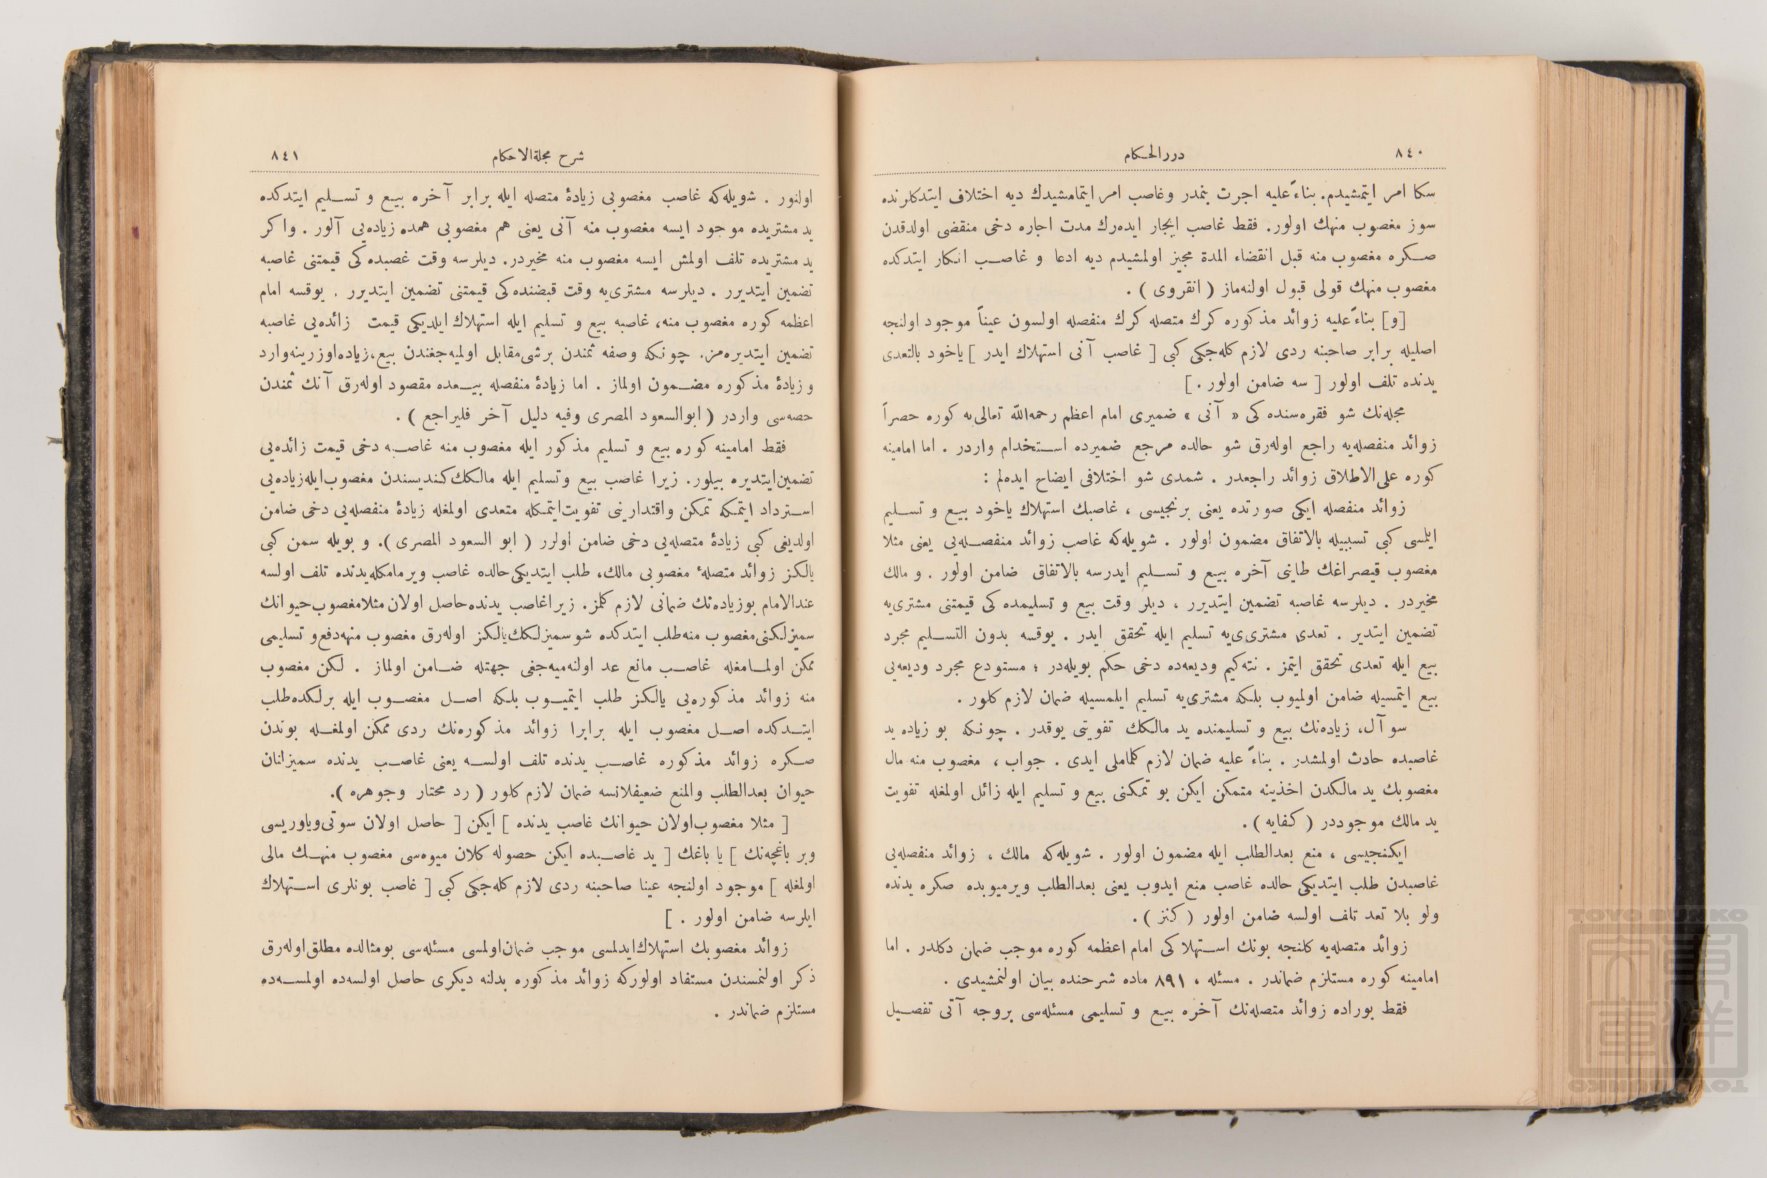 ٨٤٠
دررالحكام
سكا امر ايتمشيدم. بناءً عليه اجرت بنمدر وغاصب امر ايتمامشيدك ديه اختلاف ايتدكلرنده
سوز مغصوب منهك اولور. فقط غاصب ايجار ايده‌رك مدت اجاره دخى منقضى اولدقدن
صكره مغصوب منه قبل انقضاء المدة مجيز اولمشيدم ديه ادعا و غاصب انكار ايتدكده
مغصوب منهك قولى قبول اولنه‌ماز ( انقروى ) .
[و] بناءً عليه زوائد مذكوره كرك متصله كرك منفصله اولسون عيناً موجود اولنجه
اصليله برابر صاحبنه ردى لازم كله‌جكى كبى [ غاصب آنى استهلاك ايدر ] ياخود بالتعدى
يدنده تلف اولور [ سه ضامن اولور . ]
مجله‌نك شو فقره‌سنده كى « آنى » ضميرى امام اعظم رحمه‌الله تعالى‌يه كوره حصراً
زوائد منفصله‌يه راجع اوله‌رق شو حالده مرجع ضميرده استخدام واردر . اما امامينه
كوره على‌الاطلاق زوائد راجعدر . شمدى شو اختلافى ايضاح ايده‌لم :
زوائد منفصله ايكى صورتده يعنى برنجيسى ، غاصبك استهلاك ياخود بيع و تسليم
ايلمسى كبى تسببيله بالاتفاق مضمون اولور . شويله‌كه غاصب زوائد منفصله‌يى يعنى مثلا
مغصوب قيصراغك طاينى آخره بيع و تسليم ايدرسه بالاتفاق ضامن اولور . و مالك
مخيردر . ديلرسه غاصبه تضمين ايتديرر ، ديلر وقت بيع و تسليمده كى قيمتنى مشترى‌يه
تضمين ايتدير . تعدى مشترى‌يه تسليم ايله تحقق ايدر . يوقسه بدون التسليم مجرد
بيع ايله تعدى تحقق ايتمز . نته‌كيم وديعه‌ده دخى حكم بويله‌در ؛ مستودع مجرد وديعه‌يى
بيع ايتمسيله ضامن اولميوب بلكه مشترى‌يه تسليم ايلمسيله ضمان لازم كلور .
سوآل، زياده‌نك بيع و تسليمنده يد مالكك تفويتى يوقدر . چونكه بو زياده يد
غاصبده حادث اولمشدر . بناءً عليه ضمان لازم كلماملى ايدى . جواب ، مغصوب منه مال
مغصوبك يد مالكدن اخذينه متمكن ايكن بو تمكنى بيع و تسليم ايله زائل اولمغله تفويت
يد مالك موجوددر ( كفايه ) .
ايكنجيسى ، منع بعدالطلب ايله مضمون اولور . شويله‌كه مالك ، زوائد منفصله‌يى
غاصبدن طلب ايتديكى حالده غاصب منع ايدوب يعنى بعدالطلب ويرميوبده صكره يدنده
ولو بلا تعد تلف اولسه ضامن اولور ( كنز ) .
زوائد متصله‌يه كلنجه بونك استهلاكى امام اعظمه كوره موجب ضمان دكلدر . اما
امامينه كوره مستلزم ضماندر . مسئله ، ٨٩١ ماده شرحنده بيان اولنمشيدى .
فقط بوراده زوائد متصله‌نك آخره بيع و تسليمى مسئله‌سى بروجه آتى تفصيل
شرح مجلةالاحكام
٨٤١
اولنور . شويله‌كه غاصب مغصوبى زيادهٔ متصله ايله برابر آخره بيع و تسليم ايتدكده
يد مشتريده موجود ايسه مغصوب منه آنى يعنى هم مغصوبى همده زياده‌يى آلور . واكر
يد مشتريده تلف اولمش ايسه مغصوب منه مخيردر. ديلرسه وقت غصبده كى قيمتنى غاصبه
تضمين ايتديرر . ديلرسه مشترى‌يه وقت قبضنده‌كى قيمتنى تضمين ايتديرر . يوقسه امام
اعظمه كوره مغصوب منه، غاصبه بيع و تسليم ايله استهلاك ايلديكى قيمت زائده‌يى غاصبه
تضمين ايتديره‌مز. چونكه وصفه ثمندن برشى مقابل اولميه‌جغندن بيع، زياده اوزرينه وارد
و زيادهٔ مذكوره مضمون اولماز . اما زيادهٔ منفصله بيعده مقصود اوله‌رق آنك ثمندن
حصه‌سى واردر ( ابوالسعود المصرى وفيه دليل آخر فليراجع ) .
فقط امامينه كوره بيع و تسليم مذكور ايله مغصوب منه غاصبه دخى قيمت زائده‌يى
تضمين ايتديره بيلور. زيرا غاصب بيع وتسليم ايله مالكك كنديسندن مغصوب ايله زياده‌يى
استرداد ايتمكه تمكن واقتدارينى تفويت ايتمكله متعدى اولمغله زيادهٔ منفصله‌يى دخى ضامن
اولديغى كبى زيادهٔ متصله‌يى دخى ضامن اولرر ( ابو السعود المصرى ). و بويله سمن كبى
يالكز زوائد متصلهٔ مغصوبى مالك، طلب ايتديكى حالده غاصب ويرمامكله يدنده تلف اولسه
عندالامام بوزياده‌نك ضمانى لازم كلمز. زيرا غاصب يدنده حاصل اولان مثلا مغصوب حيوانك
سميزلكنى مغصوب منه طلب ايتدكده شو سميزلكك يالكز اوله‌رق مغصوب منهه دفع و تسليمى
ممكن اولمامغله غاصب مانع عد اولنه‌ميه‌جغى جهتله ضامن اولماز . لكن مغصوب
منه زوائد مذكوره‌يى يالكز طلب ايتميوب بلكه اصل مغصوب ايله برلكده طلب
ايتدكده اصل مغصوب ايله برابرا زوائد مذكوره‌نك ردى ممكن اولمغله بوندن
صكره زوائد مذكوره غاصب يدنده تلف اولسه يعنى غاصب يدنده سميزلنان
حيوان بعدالطلب والمنع ضعيفلانسه ضمان لازم كلور ( رد محتار وجوهره ).
[ مثلا مغصوب اولان حيوانك غاصب يدنده ] ايكن [ حاصل اولان سوتى وياوريسى
وبر باغچه‌نك ] يا باغك [ يد غاصبده ايكن حصوله كلان ميوه‌سى مغصوب منهك مالى
اولمغله ] موجود اولنجه عينا صاحبنه ردى لازم كله‌جكى كبى [ غاصب بونلرى استهلاك
ايلرسه ضامن اولور . ]
زوائد مغصوبك استهلاك ايدلمسى موجب ضمان اولمسى مسئله‌سى بومثالده مطلق اوله‌رق
ذكر اولنمسندن مستفاد اولوركه زوائد مذكوره بدلنه ديكرى حاصل اولسه‌ده اولمسه‌ده
مستلزم ضماندر .
TOYO BUNKO